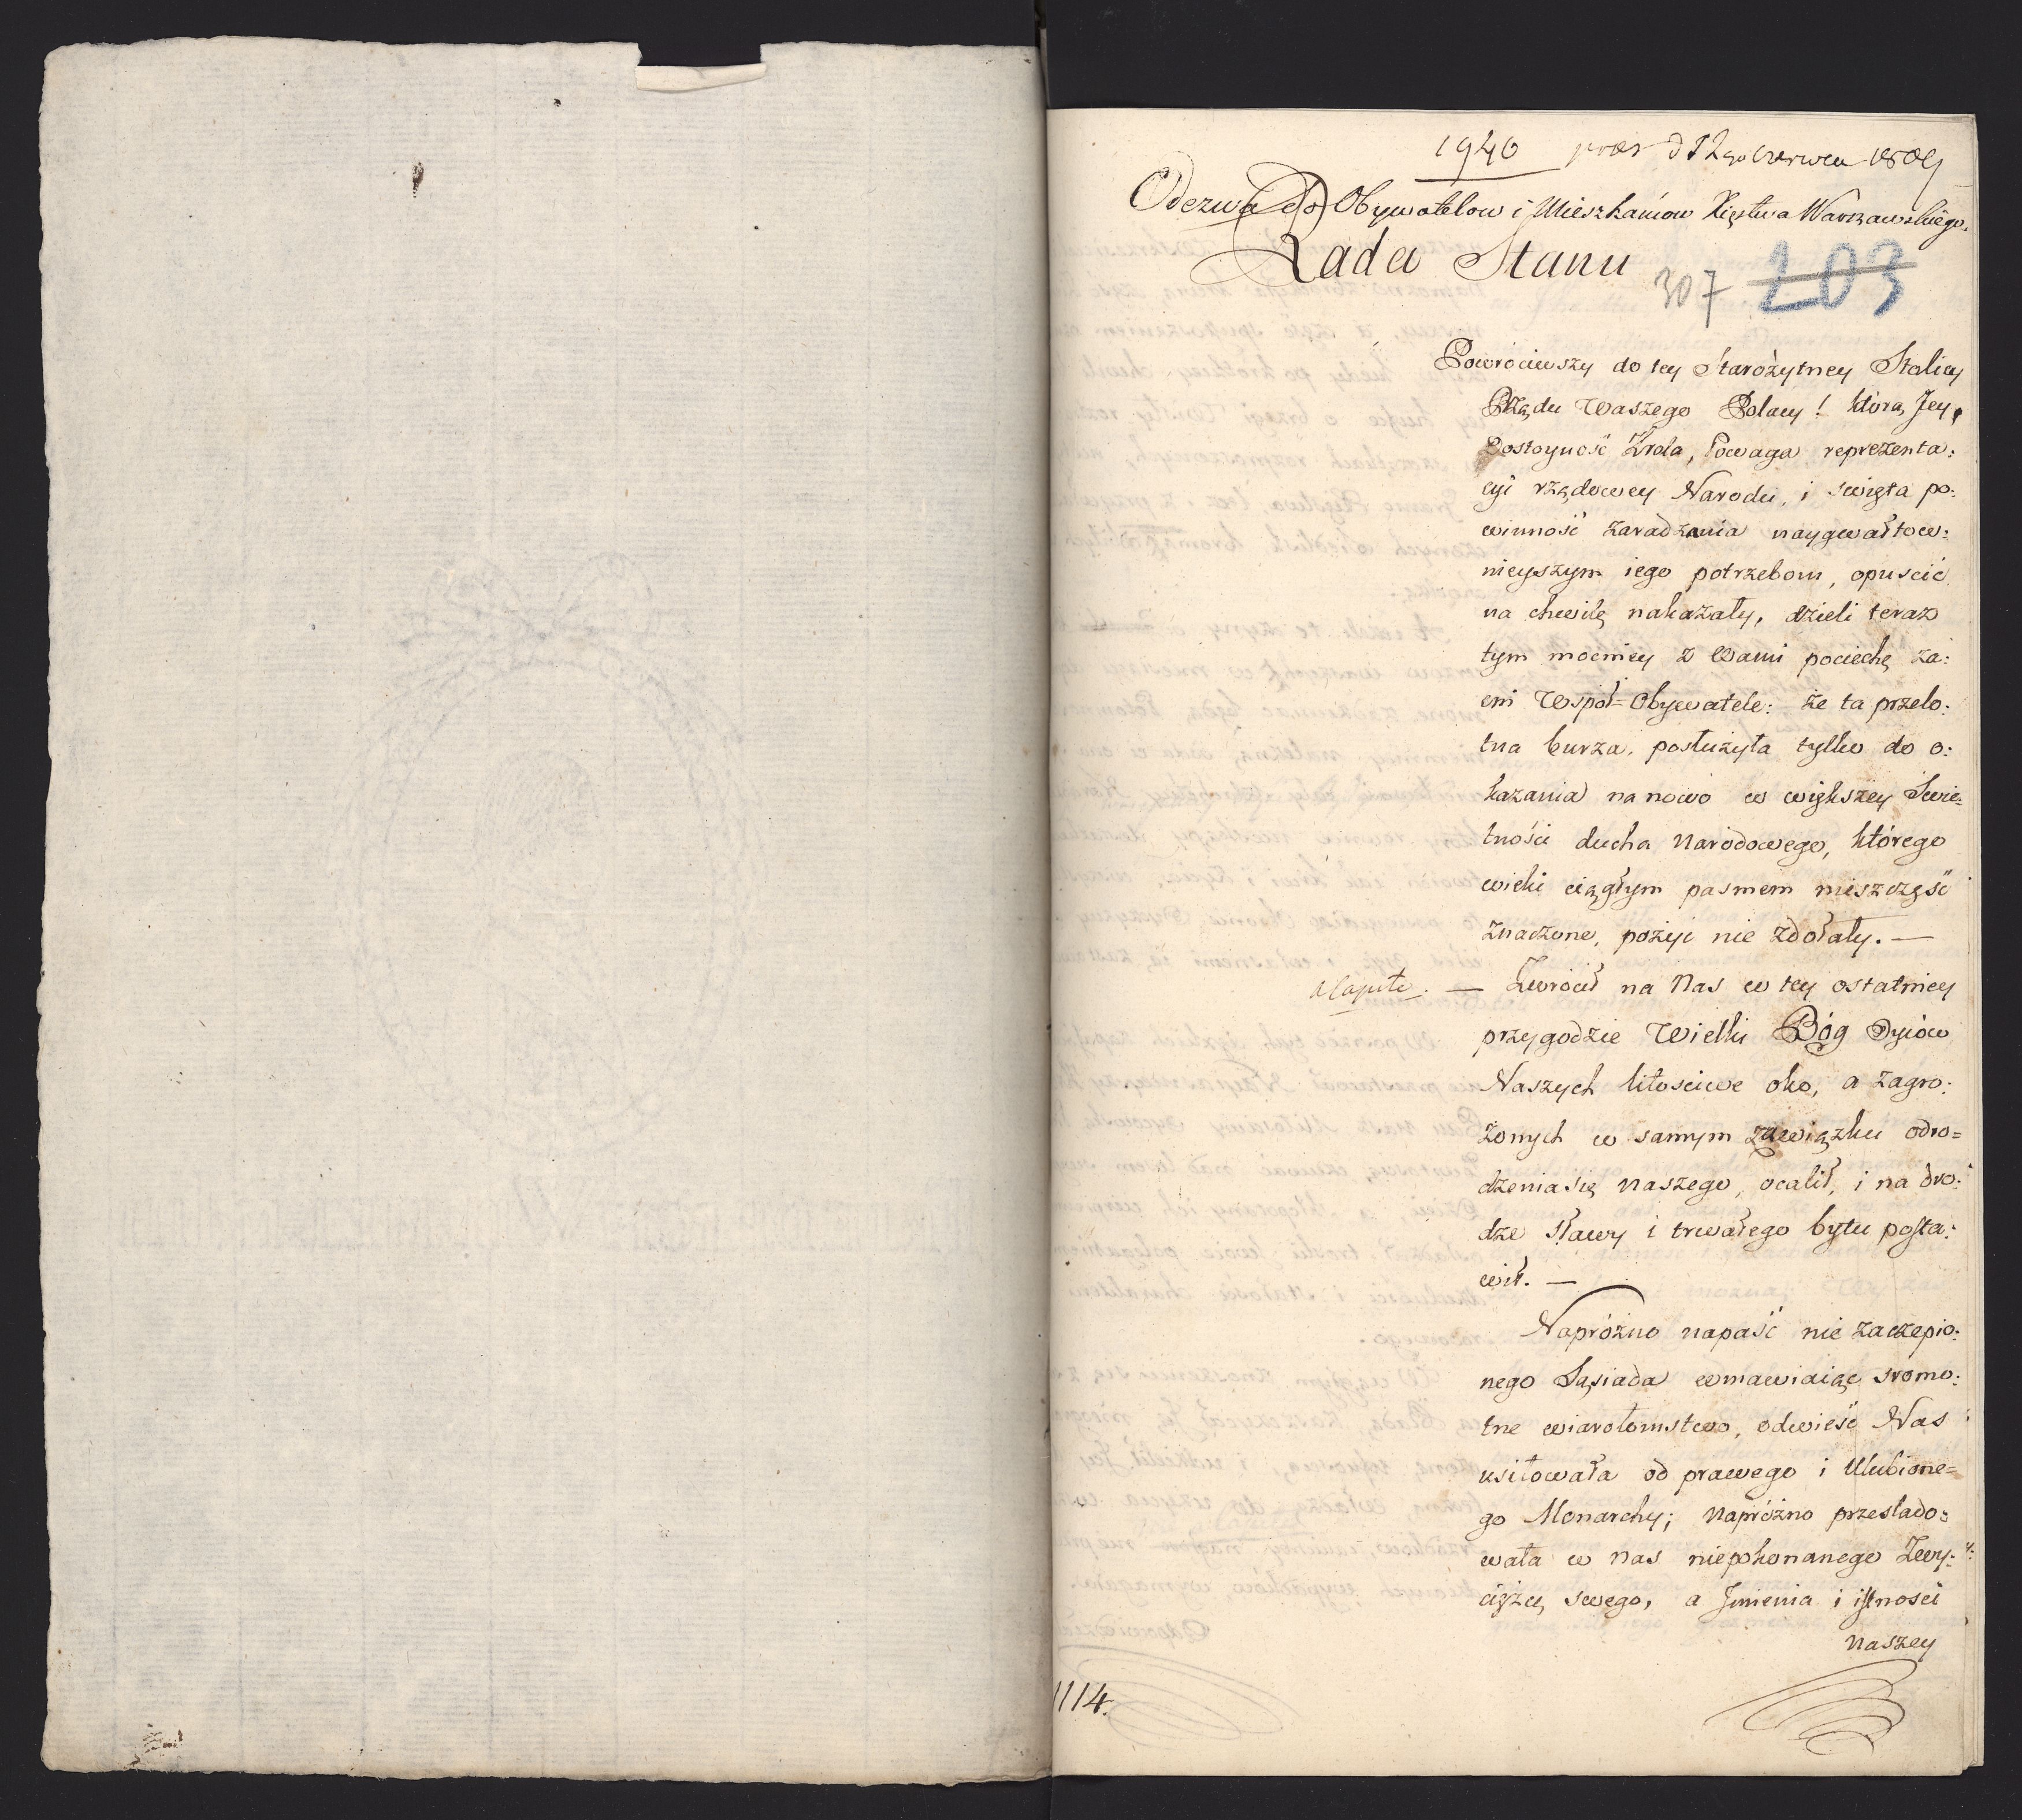 1940 praes d 12go czerwca 1809
Odezwa do Obywatelow i Mieszkańców Xięstwa Warszawskiego.
Rada Stanu
307 203
Powróciwszy do tey Starożytney Stolicy
Rządu Waszego Polacy! którą Jey,
Dostoyność Króla, Powaga reprezenta:
cyi rządowey Narodu, i swięta po:
winność zaradzania naygwałtow:
nieyszym iego potrzebom, opuscić
na chwilę nakazały, dzieli teraz
tym mocniey z Wami pociechę za:
cni Wspoł-Obywatele: że ta przelo:
tna burza, posłużyła tylko do o:
kazania na nowo w większey Swie:
tności ducha Narodowego, którego
wieki ciągłym pasmem nieszczęść
znaczone, pożyć nie zdołały. —
a capite. — Zwrócił na Nas w tey ostatniey
przygodzie Wielki Bóg Oyców
Naszych litosciwe oko, a zagro:
żonych w samym zawiązku odro=
dzenia się naszego, ocalił, i na dro:
dze sławy i trwałego bytu posta:
wił. —
Napróżno napaść nie zaczepio:
nego Sąsiada wmawiaiąc sromo:
tne wiarołomstwo, odwieść Nas
usiłowała od prawego i Ulubione=
go Monarchy; Napróżno przeslado:
wała w nas niepokonanego Zwy:
ciężcę swego, a Jmienia i istności
naszey
1114.